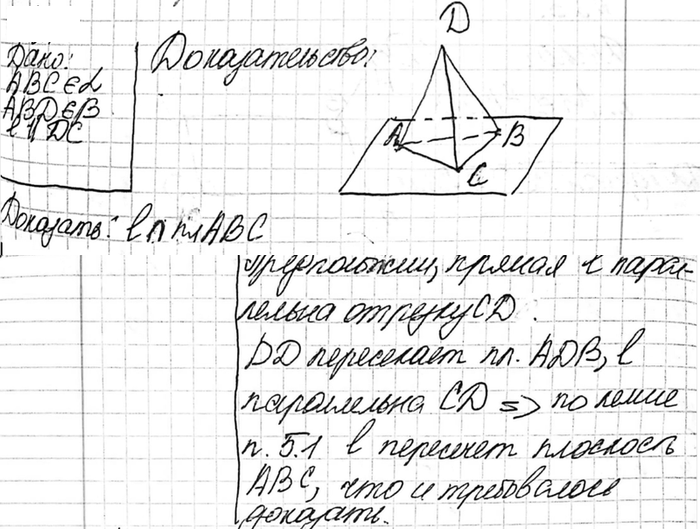 D
Дано: Доказательство:
ABC ∈ α
ABD ∈ β
l || DC
A
B
C
Доказать: l ∩ пл ABC
Предположим, прямая l парал-
лельна отрезку CD.
DD пересекает пл. ADB, l
параллельна CD => по лемме
п. 5.1 l пересечет плоскость
ABC, что и требовалось
доказать.